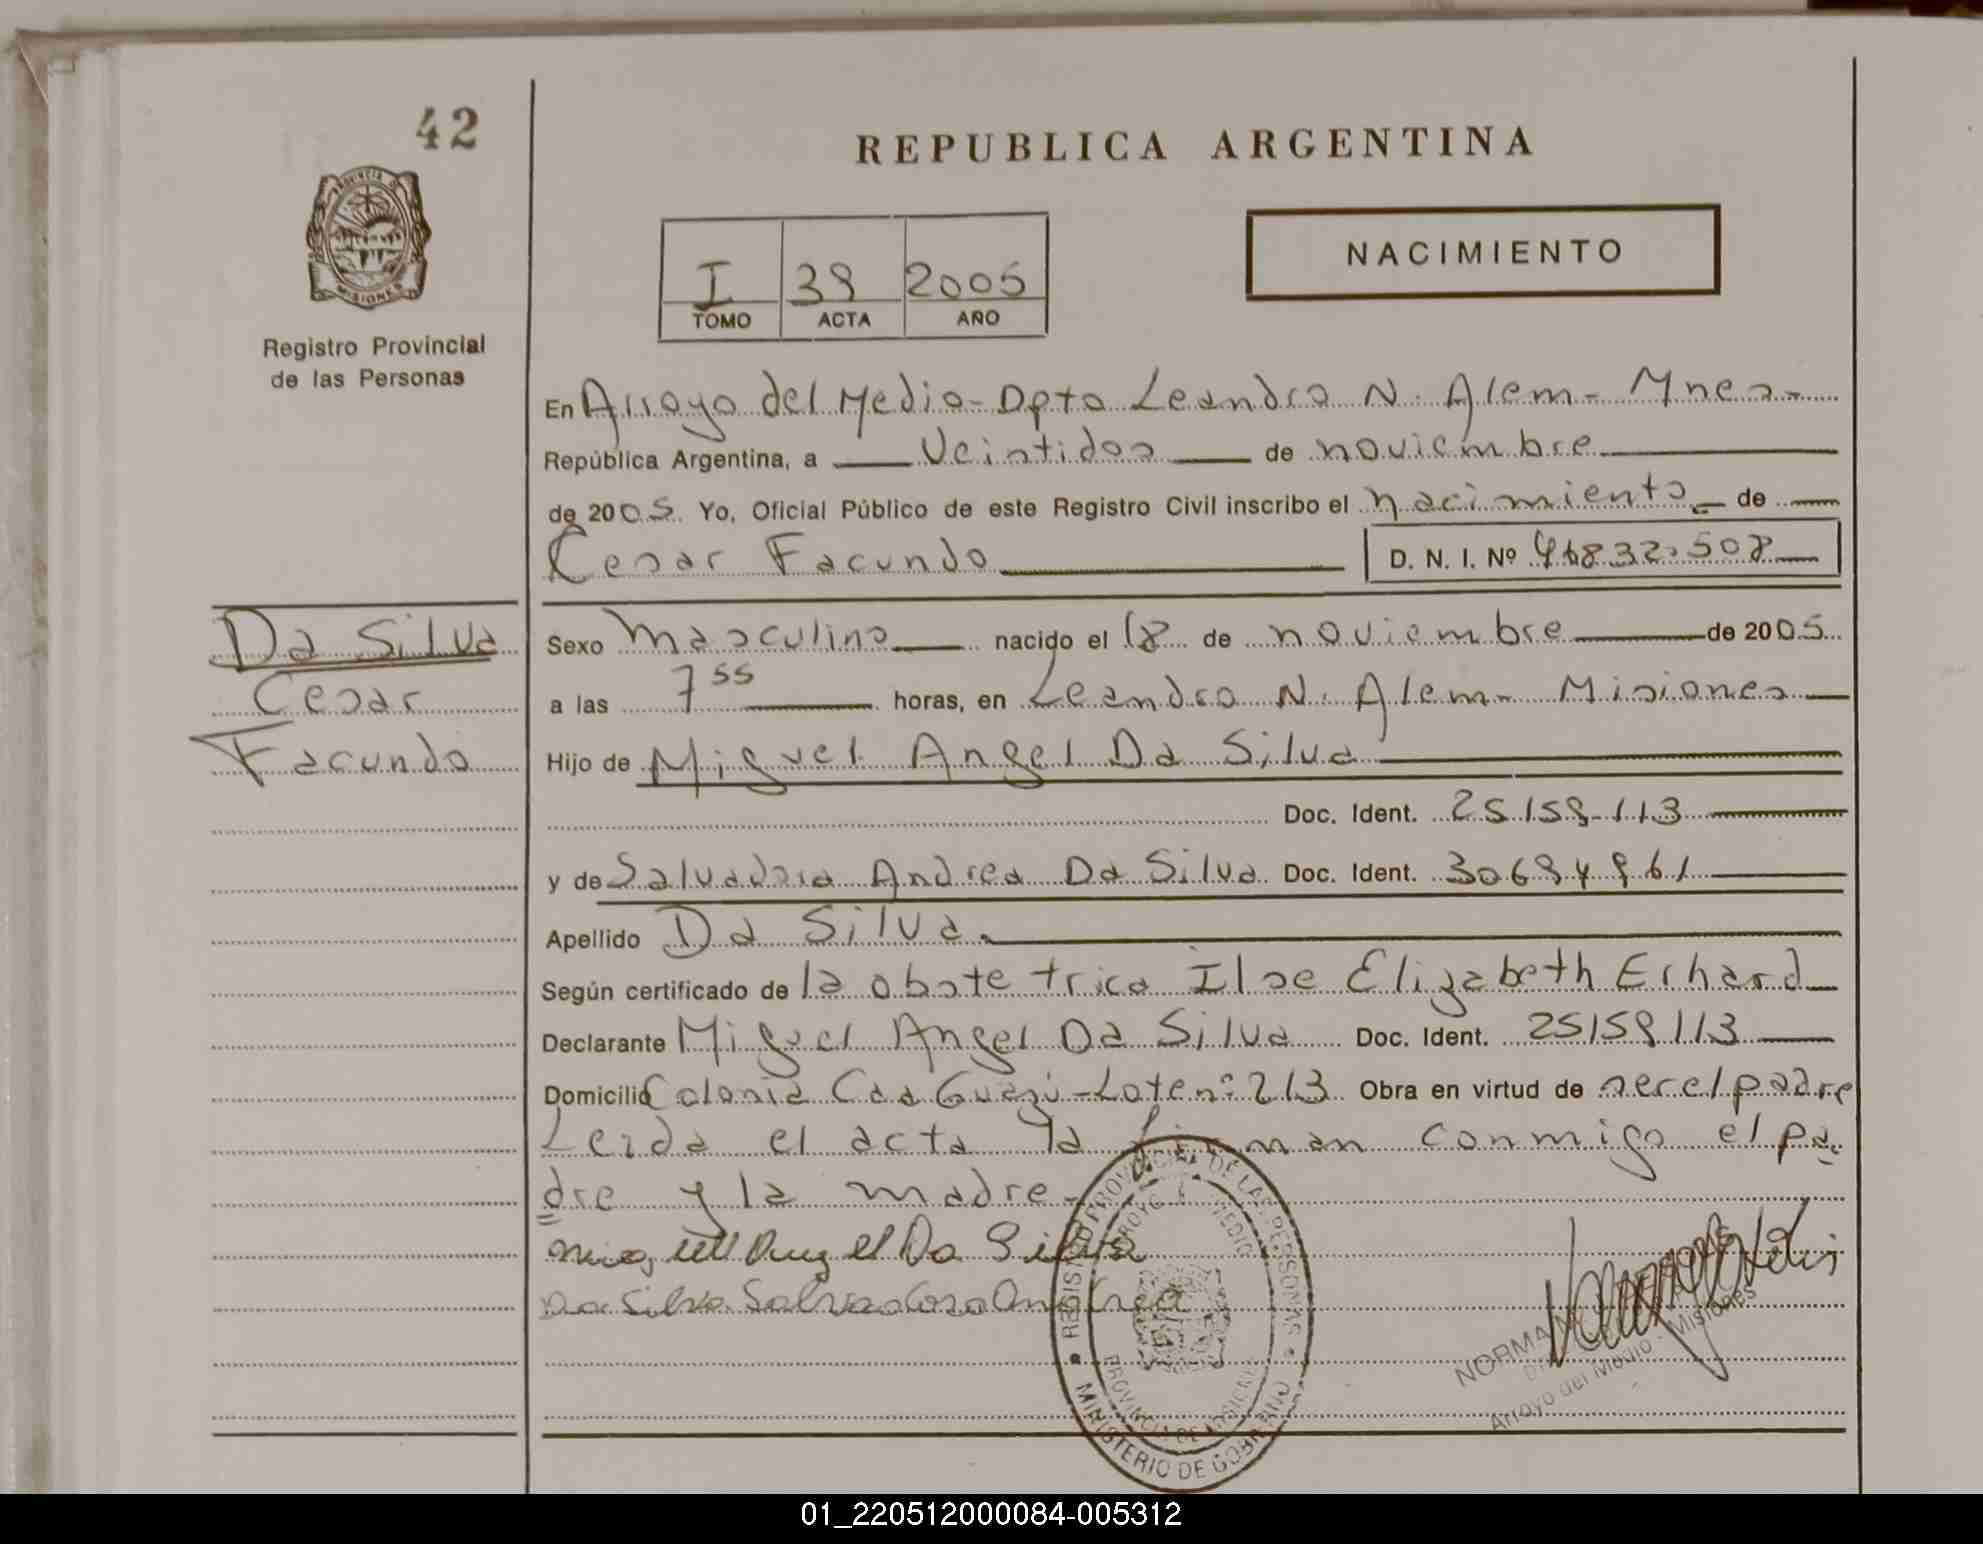 42
REPUBLICA ARGENTINA
PROVINCIA D
MISIONES
NACIMIENTO
I 39 2005
TOMO ACTA AÑO
Registro Provincial
de las Personas
En Arroyo del Medio - Dpto Leandro N. Alem - Mnes -
República Argentina, a Veintidos de noviembre
de 2005. Yo, Oficial Público de este Registro Civil inscribo el nacimiento de
Cesar Facundo D. N. I. Nº 46832.508
Da Silva
Cesar
Facundo
Sexo Masculino nacido el 18 de noviembre de 2005
a las 7 55 horas, en Leandro N. Alem - Misiones
Hijo de Miguel Angel Da Silva
Doc. Ident. 25159.113
y de Salvadora Andrea Da Silva Doc. Ident. 30694961
Apellido Da Silva.
Según certificado de la obstetrica Ilse Elizabeth Erhard
Declarante Miguel Angel Da Silva Doc. Ident. 25159113
Domicilio Colonia Caa Guazú - Lote nº 213 Obra en virtud de ser el padre
Leida el acta la firman conmigo el pa
dre y la madre -
Miguel Angel Da Silva
Da Silva Salvadora Andrea
REGISTRO PROVINCIAL DE LAS PERSONAS
ARROYO DEL MEDIO
PROVINCIA DE MISIONES
MINISTERIO DE GOBIERNO
NORMA
Arroyo del Medio - Misiones
01_220512000084-005312